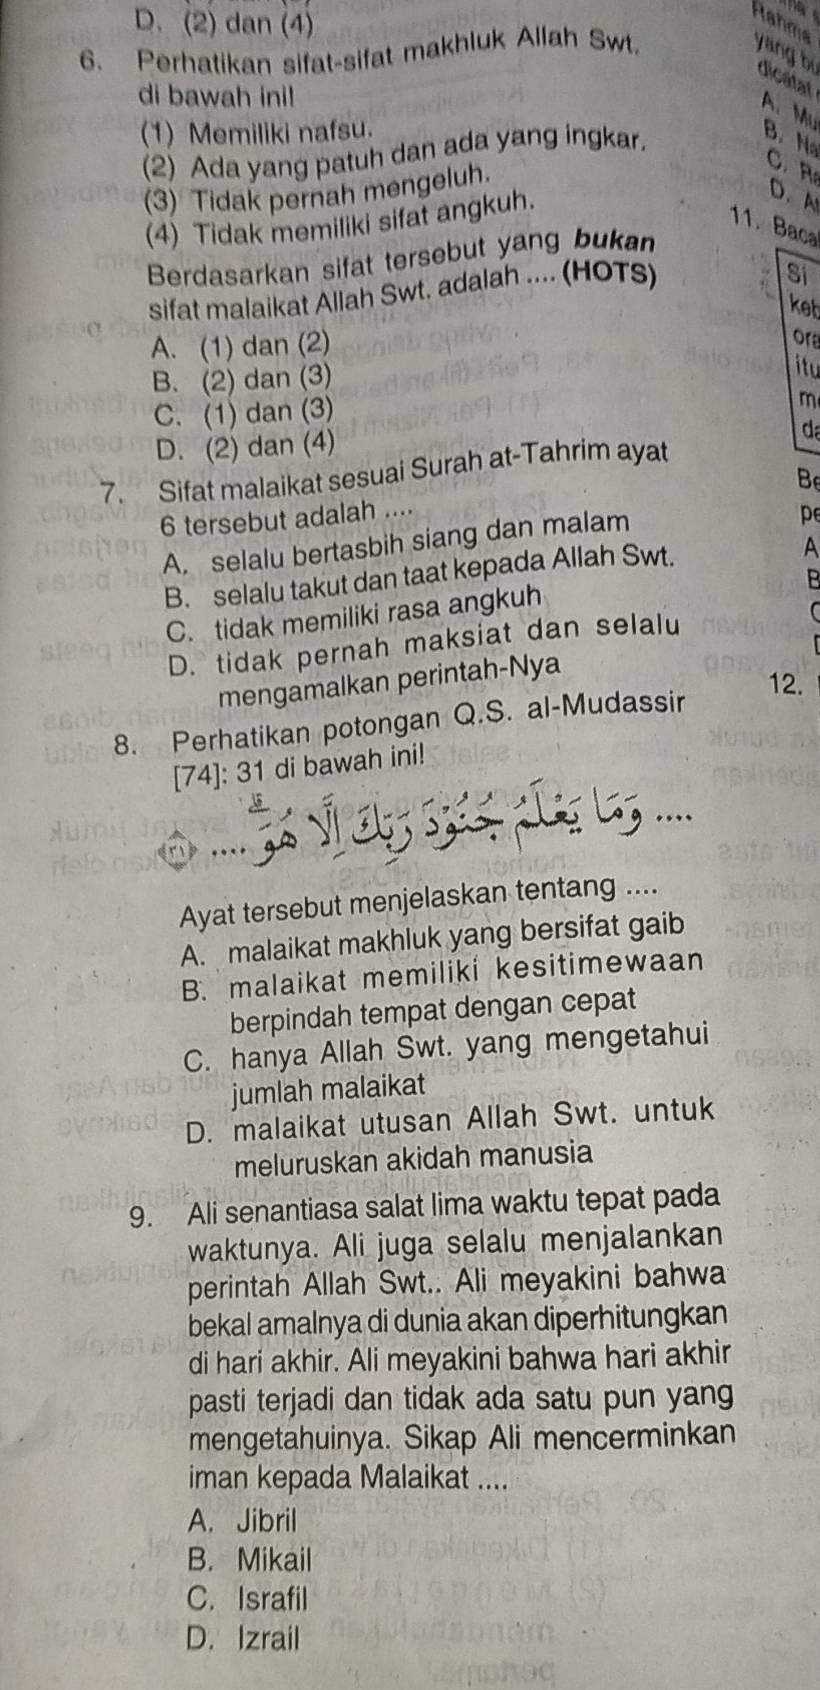 D. (2) dan (4)
6. Perhatikan sifat-sifat makhluk Allah Swt.
di bawah ini!
(1) Memiliki nafsu.
(2) Ada yang patuh dan ada yang ingkar.
(3) Tidak pernah mengeluh.
(4) Tidak memiliki sifat angkuh.
Berdasarkan sifat tersebut yang bukan
sifat malaikat Allah Swt. adalah .... (HOTS)
A. (1) dan (2)
B. (2) dan (3)
C. (1) dan (3)
D. (2) dan (4)
7. Sifat malaikat sesuai Surah at-Tahrim ayat
6 tersebut adalah ....
A. selalu bertasbih siang dan malam
B. selalu takut dan taat kepada Allah Swt.
C. tidak memiliki rasa angkuh
D. tidak pernah maksiat dan selalu
mengamalkan perintah-Nya
8. Perhatikan potongan Q.S. al-Mudassir
[74]: 31 di bawah ini!
.... وَمَا يَعْلَمُ جُنُوْدَ رَبِّكَ اِلَّا هُوَۗ .... ﴿٣١﴾
Ayat tersebut menjelaskan tentang ....
A. malaikat makhluk yang bersifat gaib
B. malaikat memiliki kesitimewaan
berpindah tempat dengan cepat
C. hanya Allah Swt. yang mengetahui
jumlah malaikat
D. malaikat utusan Allah Swt. untuk
meluruskan akidah manusia
9. Ali senantiasa salat lima waktu tepat pada
waktunya. Ali juga selalu menjalankan
perintah Allah Swt.. Ali meyakini bahwa
bekal amalnya di dunia akan diperhitungkan
di hari akhir. Ali meyakini bahwa hari akhir
pasti terjadi dan tidak ada satu pun yang
mengetahuinya. Sikap Ali mencerminkan
iman kepada Malaikat ....
A. Jibril
B. Mikail
C. Israfil
D. Izrail
Rahma
yang bu
dicatat
A. Mu
B. Na
C. Ra
D.
11. Baca
Si
keb
ora
itu
m
da
Be
pe
A
B
12.